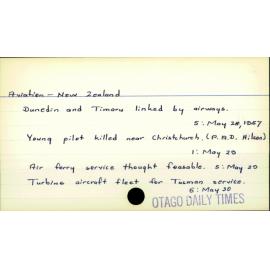 Aviation - New Zealand
Dunedin and Timaru linked by airways.
5: May 28, 1957
Young pilot killed near Christchurch. (P.A.D. Hilson)
1: May 29
Air ferry service thought feasable. 5: May 29
Turbine aircraft fleet for Tasman service.
6: May 30
OTAGO DAILY TIMES